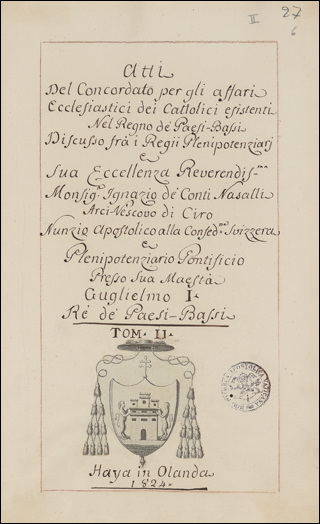 II
27
6
Atti
Del Concordato per gli affari
Ecclesiastici dei Cattolici esistenti
Nel Regno de' Paesi-Bassi
Discusso frà i Regii Plenipotenziarj
e
Sua Eccellenza Reverendis-ma
Monsigr. Ignazio de' Conti Nasalli
Arci-Vescovo di Ciro
Nunzio Apostolico alla Confedne. Svizzera
e
Plenipotenziario Pontificio
Presso Sua Maestà
Guglielmo I.
Rè de' Paesi-Bassi
TOM. II.
Haya in Olanda
1824.